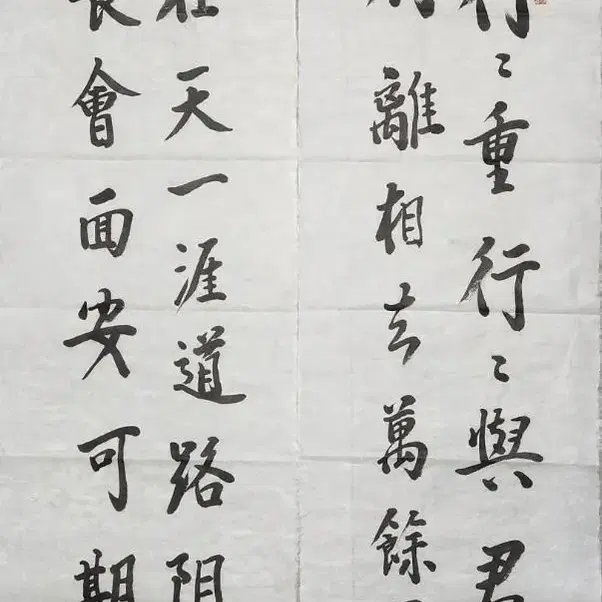 行〻重行〻與君
離相去萬餘
在天一涯道路阻
長會面安可期